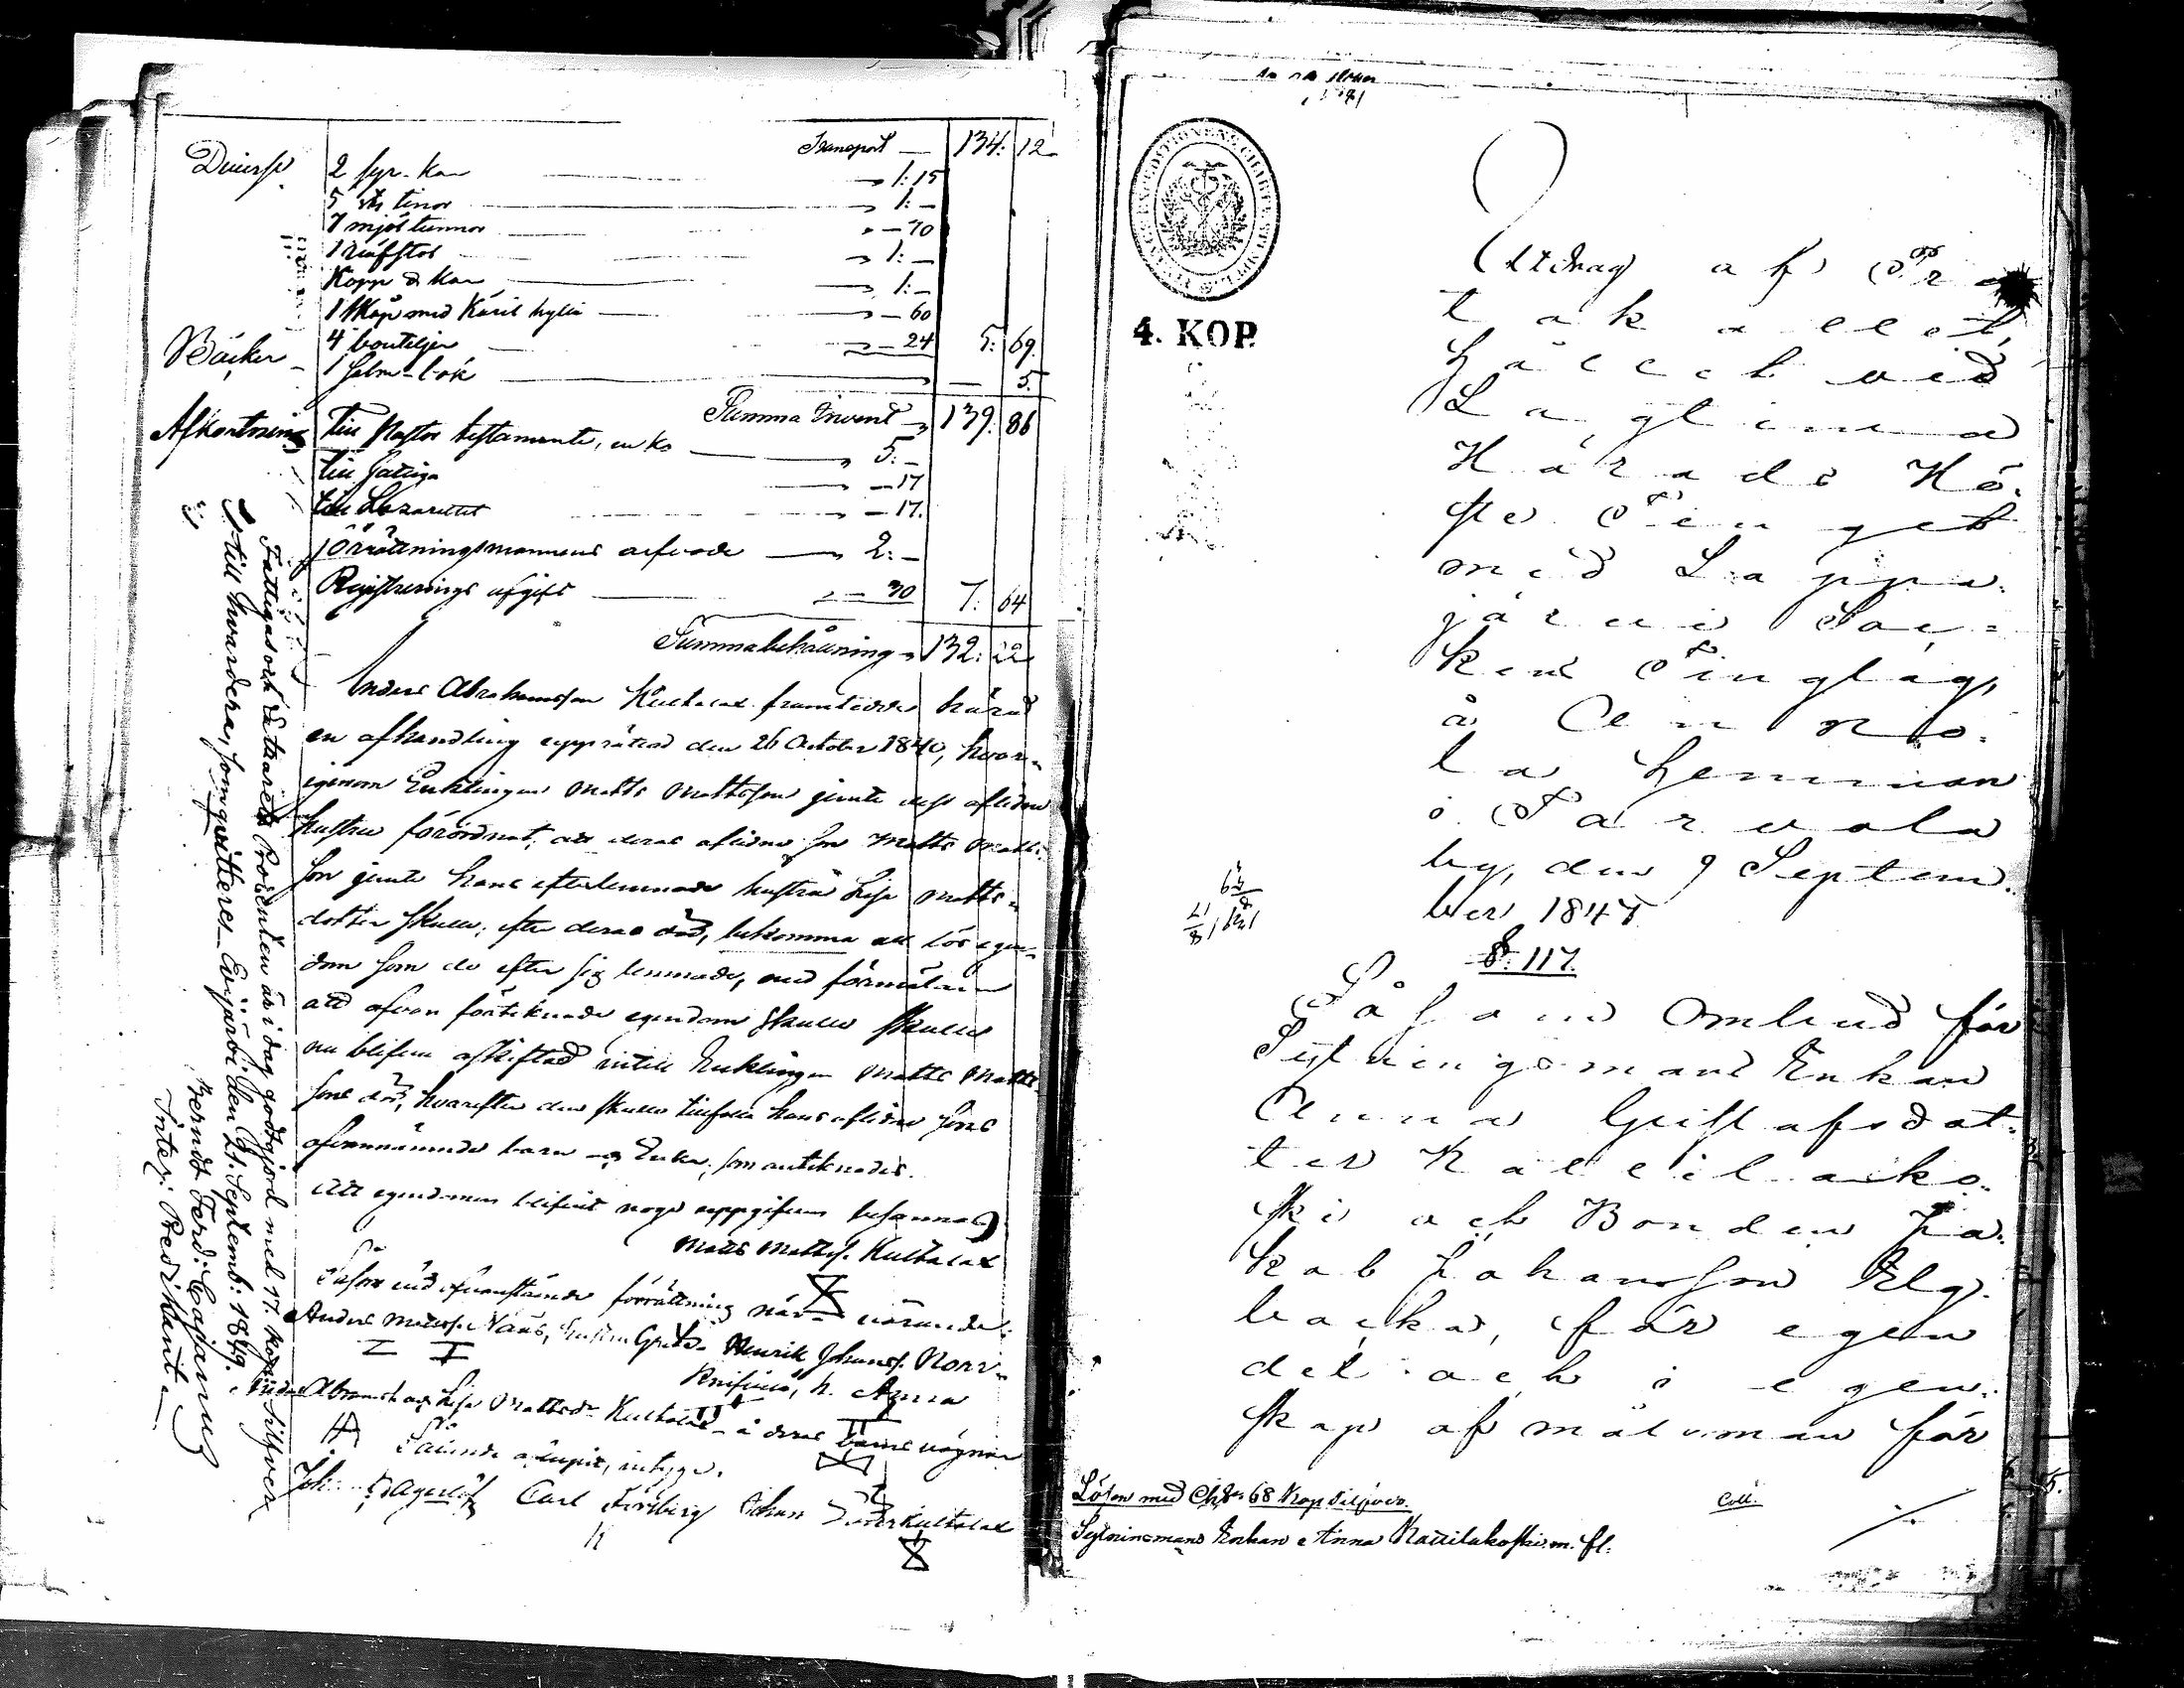 Transport — 134: 12
Diverse. 2 fyr-kar — 1:15
5 st: tinor — 1:—
7 mjöl tunnor — 70
1 — 1:—
Kopp & kar — 1:—
1 Skåp med Käril hylla — 60
4 bouteljer — 24 5: 69.
Böcker — 1 Salm-bok — 5.
Summa Invent 139: 86
Afkortning Till Pastor testamente, en ko — 5:—
till fattiga — 17
till Lazarettet — 17.
förrättningsmannens arfvode — 2:—
Registrerings afgift — 30 7: 64
Summa behållning 132: 22
Anders Abrahamsson Kultalax framtedde härvid
en afhandling upprättad den 26 October 1840, hvar-
igenom Enklingen Matts Mattsson jemte dess aflidna
hustru förordnat, att deras aflidne son Matts Matts-
son jemte hans efterlemnade hustru Lisa Matts-
dotter skulle, efter deras död, bekomma all lös egen-
dom som de efter sig lemnade, med förmälan
att ofvan förteknade egendom skulle skulle
nu blifva oskiftad intill Enklingen Matts Matts-
sons död, hvarefter den skulle tillfalla hans aflidne sons
ofvannämnde barn och Enka, som antecknades.
Att egendomen blifvit noga uppgifven besannas
Matts Matts. Kultalax
Såsom vid ofvanstående förrättning när- värande:
Anders Matts. Näns, hustru Greta. Henrik Johans. Norr-
h. Anna
Anders Abramss. och Lisa Mattsdr Kultalax - å deras barns vägnar
Sålunda intyga.
Joh: Lagerlöf Carl Forsberg Johan Söderkultalax
Fattigas och Lazaretts Procenten är i dag godtgjord med 17. kop: Silfver
till hvardera, som qvitteres — Evijärvi den 21. Septemb: 1849.
Berndt Ferd: Cajanus
Inter: Predikant —
4. KOP.
Utdrag af Pro
tokollet,
hållet vid
Lagtima
Härads Hö-
ste Tinget
med Lappa-
järvi Soc-
kens Tinglag,
å Ala No-
la hemman
i Tarvola
by, den 9 Septem-
ber 1847
§. 117.
Såsom Ombud för
Sexmans Enkan
Anna Gustafsdot-
ter Kattilako-
ski och Bonden Ja-
kob Johansson Elg-
backa, för egen
del och i egen-
skap af målsman för
Lösen med Ch.Sr 68 Kop Silfver. Coll.
Enkan Anna Kattilakoski m. fl.